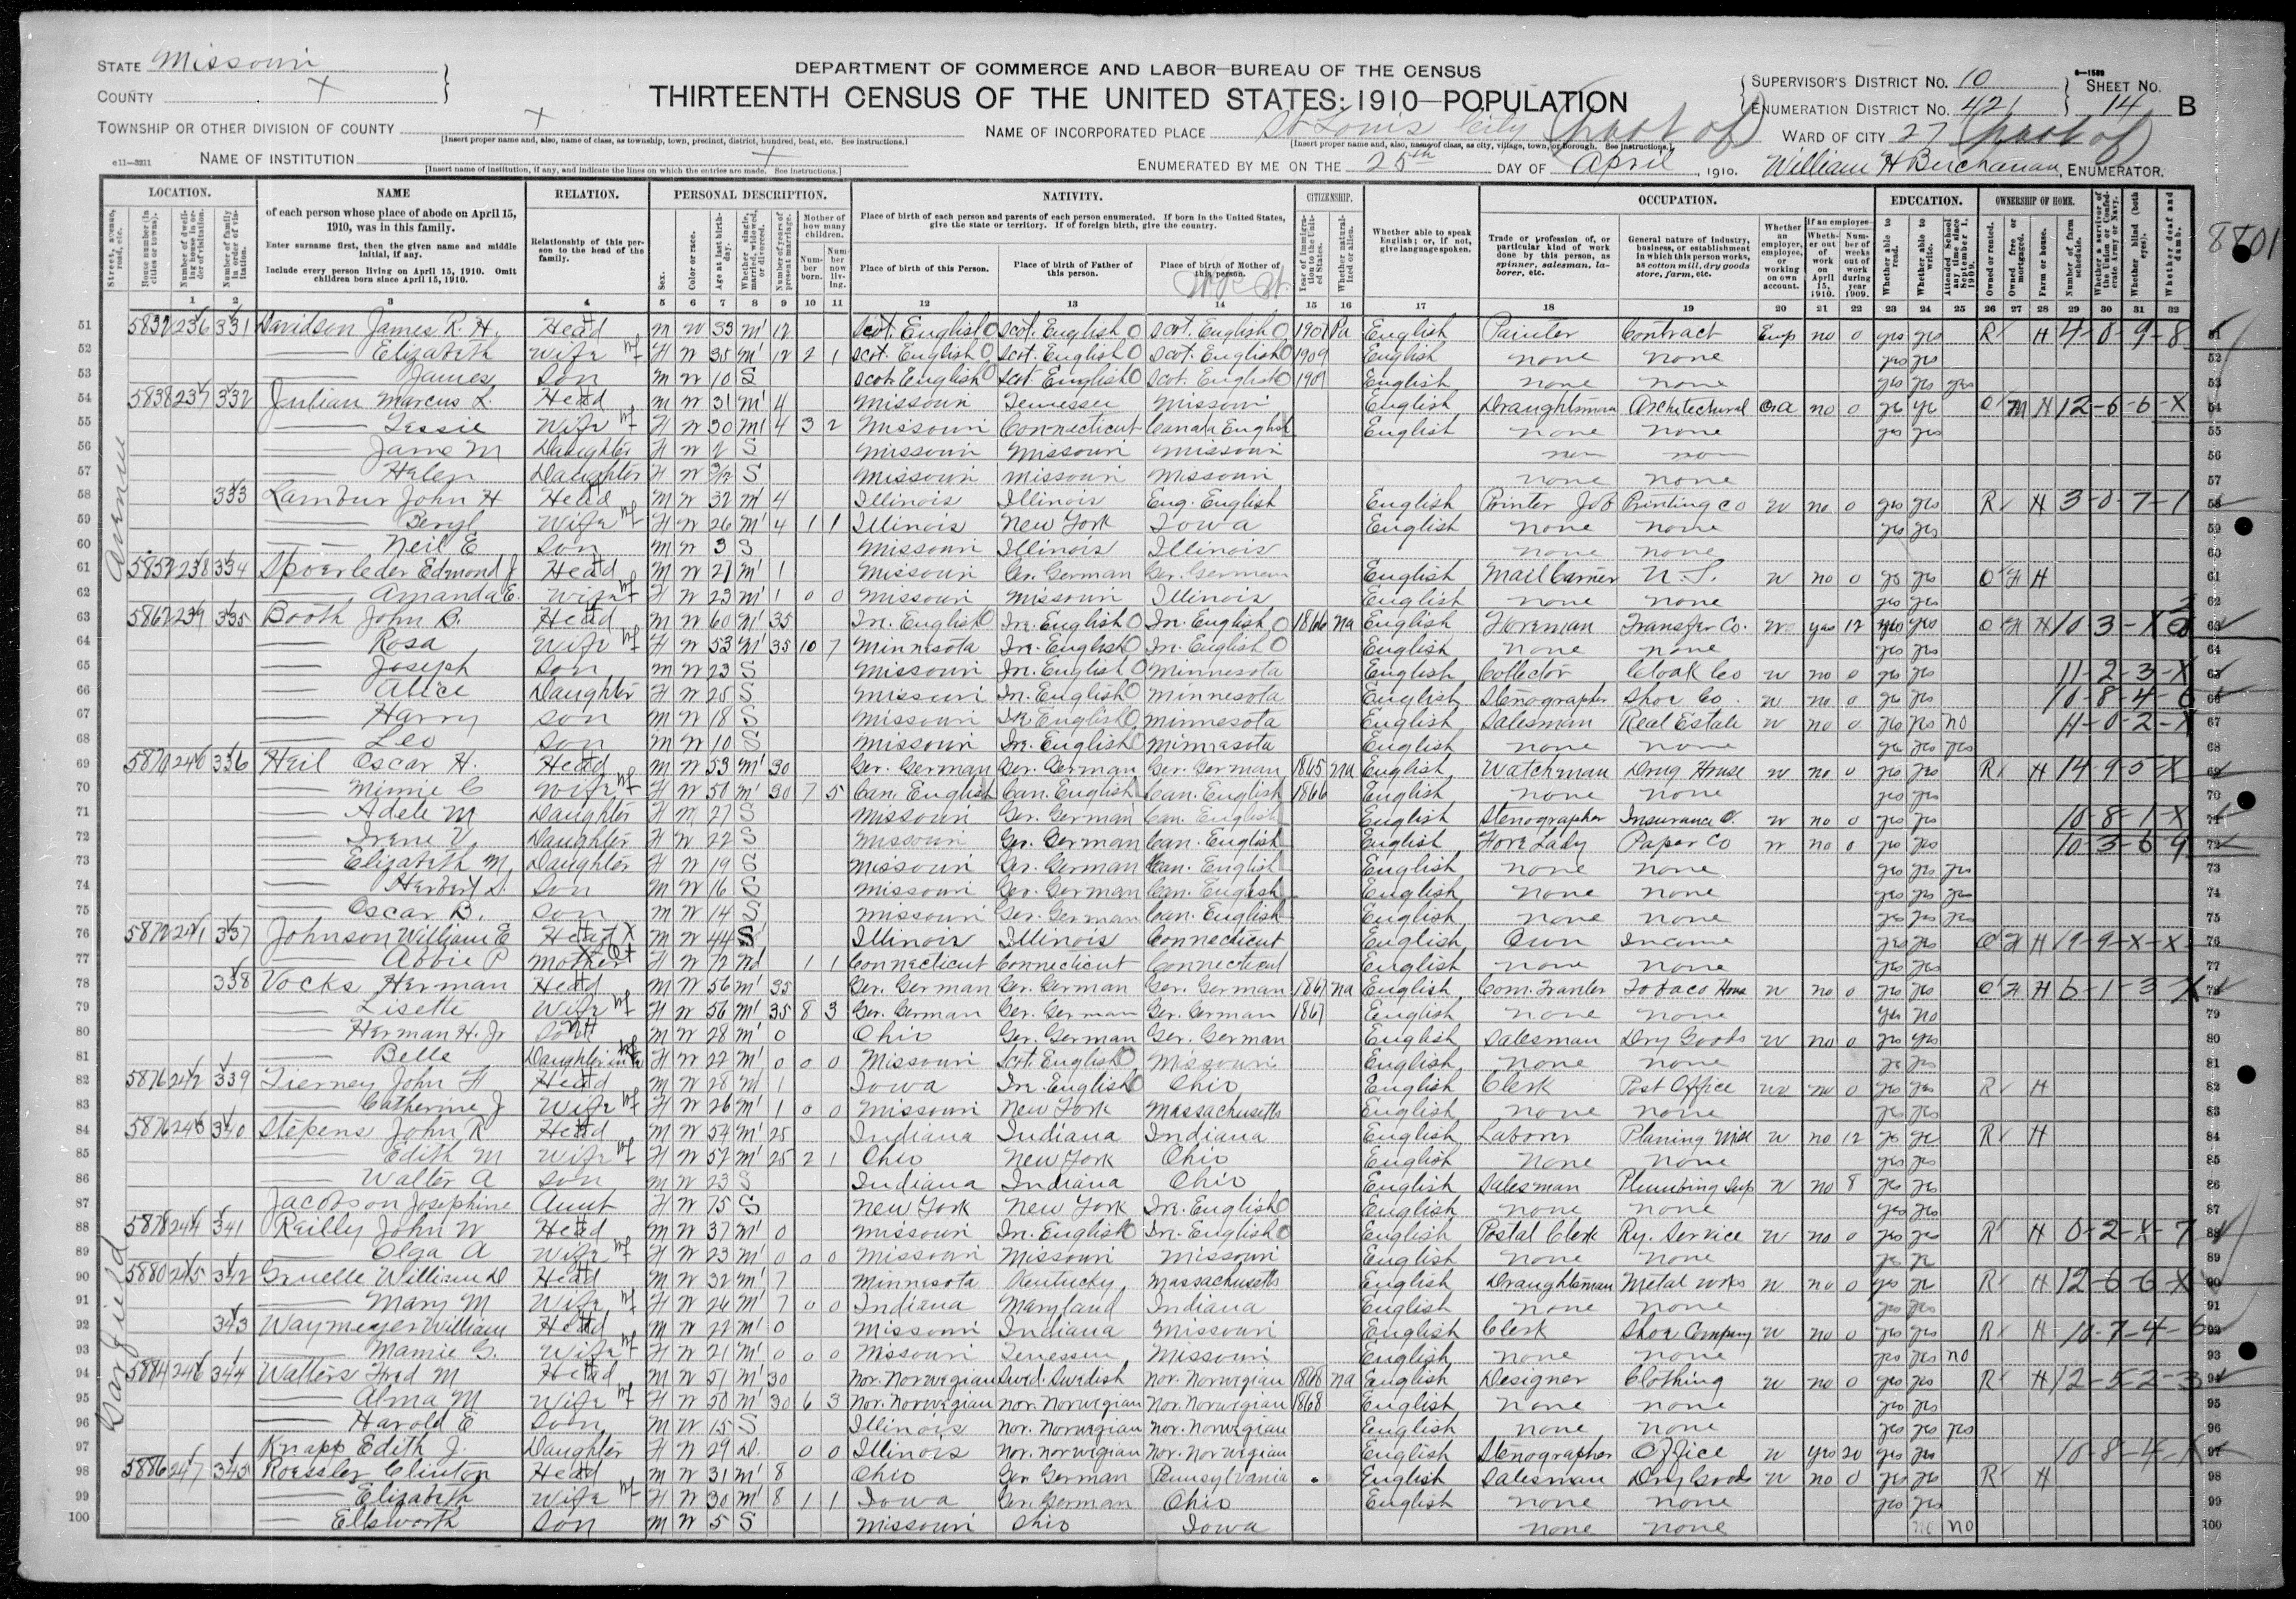 STATE Missouri
COUNTY X
TOWNSHIP OR OTHER DIVISION OF COUNTY X
[Insert proper name and, also, name of class, as township, town, precinct, district, hundred, beat, etc. See instructions.]
NAME OF INSTITUTION X
[Insert name of institution, if any, and indicate the lines on which the entries are made. See instructions.]
c11—3211
DEPARTMENT OF COMMERCE AND LABOR—BUREAU OF THE CENSUS
THIRTEENTH CENSUS OF THE UNITED STATES: 1910—POPULATION
NAME OF INCORPORATED PLACE St Louis City (part of)
[Insert proper name and, also, name of class, as city, village, town, or borough. See instructions.]
ENUMERATED BY ME ON THE 25th DAY OF April, 1910.
SUPERVISOR'S DISTRICT No. 10
ENUMERATION DISTRICT No. 421
SHEET No. 14 B
WARD OF CITY 27 (part of)
William H Buchanan, ENUMERATOR.
8801
LOCATION. NAME RELATION. PERSONAL DESCRIPTION. NATIVITY. CITIZENSHIP. OCCUPATION. EDUCATION. OWNERSHIP OF HOME.
of each person whose place of abode on April 15, 1910, was in this family.
Enter surname first, then the given name and middle initial, if any.
Include every person living on April 15, 1910. Omit children born since April 15, 1910.
Relationship of this person to the head of the family.
Place of birth of each person and parents of each person enumerated. If born in the United States, give the state or territory. If of foreign birth, give the country.
Place of birth of this Person. Place of birth of Father of this person. Place of birth of Mother of this person.
Whether able to speak English; or, if not, give language spoken.
Trade or profession of, or particular kind of work done by this person, as spinner, salesman, laborer, etc.
General nature of industry, business, or establishment in which this person works, as cotton mill, dry goods store, farm, etc.
1 2 3 4 5 6 7 8 9 10 11 12 13 14 15 16 17 18 19 20 21 22 23 24 25 26 27 28 29 30 31 32
Garfield Avenue
51 5832 236 331 Davidson James R. H. Head M W 33 M1 12 Scot. English Scot. English Scot. English 1901 Pa English Painter Contract Emp no 0 yes yes R H 4-0-9-8
52 Elizabeth Wife F W 35 M1 12 2 1 Scot. English Scot. English Scot. English 1909 English none none yes yes
53 James Son M W 10 S Scot. English Scot. English Scot. English 1909 English none none yes yes yes
54 5838 237 332 Julian Marcus L. Head M W 31 M1 4 Missouri Tennessee Missouri English Draughtsman Architectural Oa no 0 yes yes O M H 12-6-6-X
55 Tessie Wife F W 30 M1 4 3 2 Missouri Connecticut Canada English English none none yes yes
56 Jane M Daughter F W 2 S Missouri Missouri Missouri
57 Helen Daughter F W 3/12 S Missouri Missouri Missouri none none
58 333 Lambur John H Head M W 32 M1 4 Illinois Illinois Eng. English English Printer Job Printing Co W no 0 yes yes R H 3-0-7-1
59 Beryl Wife F W 26 M1 4 1 1 Illinois New York Iowa English none none yes yes
60 Neil E Son M W 3 S Missouri Illinois Illinois none none
61 5852 238 334 Spoerleder Edmond J Head M W 27 M1 1 Missouri Ger. German Ger. German English Mail Carrier U.S. W no 0 yes yes O F H
62 Amanda E. Wife F W 23 M1 1 0 0 Missouri Missouri Illinois English none none yes yes
63 5862 239 335 Booth John B. Head M W 60 M1 35 Ire. English Ire. English Ire. English 1866 na English Foreman Transfer Co. W yes 12 yes yes O F H 10-3-X
64 Rosa Wife F W 53 M1 35 10 7 Minnesota Ire. English Ire. English English none none yes yes
65 Joseph Son M W 23 S Missouri Ire. English Minnesota English Collector Cloak Co W no 0 yes yes 11-2-3-X
66 Alice Daughter F W 20 S Missouri Ire. English Minnesota English Stenographer Shoe Co. W no 0 yes yes 10-8-4-6
67 Harry Son M W 18 S Missouri Ire. English Minnesota English Salesman Real Estate W no 0 yes yes no 11-0-2-X
68 Leo Son M W 10 S Missouri Ire. English Minnesota English none none yes yes yes
69 5870 240 336 Heil Oscar H. Head M W 53 M1 30 Ger. German Ger. German Ger. German 1865 na English Watchman Drug House W no 0 yes yes R H 14-9-5-X
70 Minnie C Wife F W 50 M1 30 7 5 Can. English Can. English Can. English 1866 English none none yes yes
71 Adele M Daughter F W 27 S Missouri Ger. German Can. English English Stenographer Insurance O. W no 0 yes yes 10-8-1-X
72 Irene V. Daughter F W 22 S Missouri Ger. German Can. English English Fore Lady Paper Co W no 0 yes yes 10-3-6-9
73 Elizabeth M. Daughter F W 19 S Missouri Ger. German Can. English English none none yes yes yes
74 Herbert S. Son M W 16 S Missouri Ger. German Can. English English none none yes yes yes
75 Oscar B. Son M W 14 S Missouri Ger. German Can. English English none none yes yes yes
76 5872 241 337 Johnson William E Head X M W 44 S Illinois Illinois Connecticut English Own Income yes yes O F H 19-9-X-X
77 Abbie P Mother F W 72 Wd 1 1 Connecticut Connecticut Connecticut English none none yes yes
78 338 Vocks Herman Head M W 56 M1 35 Ger. German Ger. German Ger. German 1867 na English Com. Traveler Tobaco House W no 0 yes yes O F H 6-1-3-X
79 Lisette Wife F W 56 M1 35 8 3 Ger. German Ger. German Ger. German 1867 English none none yes no
80 Herman H. Jr Son M W 28 M1 0 Ohio Ger. German Ger. German English Salesman Dry Goods W no 0 yes yes
81 Belle Daughter in la F W 22 M1 0 0 0 Missouri Scot. English Missouri English none none yes yes
82 5876 242 339 Tierney John F Head M W 28 M1 1 Iowa Ire. English Ohio English Clerk Post Office W no 0 yes yes R H
83 Catherine J Wife F W 26 M1 1 0 0 Missouri New York Massachusetts English none none yes yes
84 5876 243 340 Stepens John R Head M W 54 M1 25 Indiana Indiana Indiana English Laborer Planing Mill W no 12 yes yes R H
85 Edith M Wife F W 52 M1 25 2 1 Ohio New York Ohio English none none yes yes
86 Walter A Son M W 23 S Indiana Indiana Ohio English Salesman Plumbing Sup W no 8 yes yes
87 Jacobson Josephine Aunt F W 75 S New York New York Ire. English English none none yes yes
88 5878 244 341 Reilly John W Head M W 37 M1 0 Missouri Ire. English Ire. English English Postal Clerk Ry. Service W no 0 yes yes R H 0-2-X-7
89 Olga A Wife F W 23 M1 0 0 0 Missouri Missouri Missouri English none none yes yes
90 5880 245 342 Gruelle William D Head M W 32 M1 7 Minnesota Kentucky Massachusetts English Draughtsman Metal Works W no 0 yes yes R H 12-6-6-X
91 Mary M Wife F W 26 M1 7 0 0 Indiana Maryland Indiana English none none yes yes
92 343 Waymeyer William Head M W 22 M1 0 Missouri Indiana Missouri English Clerk Shoe Company W no 0 yes yes R H 10-7-4-6
93 Mamie G. Wife F W 21 M1 0 0 0 Missouri Tenessee Missouri English none none yes yes no
94 5884 246 344 Walters Fred M Head M W 51 M1 30 Nor. Norwegian Swed. Swedish Nor. Norwegian 1868 na English Designer Clothing W no 0 yes yes R H 12-5-2-3
95 Alma M Wife F W 50 M1 30 6 3 Nor. Norwegian Nor. Norwegian Nor. Norwegian 1868 English none none yes yes
96 Harold E Son M W 15 S Illinois Nor. Norwegian Nor. Norwegian English none none yes yes yes
97 Knapp Edith J. Daughter F W 29 D. 0 0 Illinois Nor. Norwegian Nor. Norwegian English Stenographer Office W yes 20 yes yes 10-8-4-X
98 5886 247 345 Roessler Clinton Head M W 31 M1 8 Ohio Ger. German Pennsylvania English Salesman Dry Goods W no 0 yes yes R H
99 Elizabeth Wife F W 30 M1 8 1 1 Iowa Ger. German Ohio English none none yes yes
100 Ellsworth Son M W 5 S Missouri Ohio Iowa none none no no